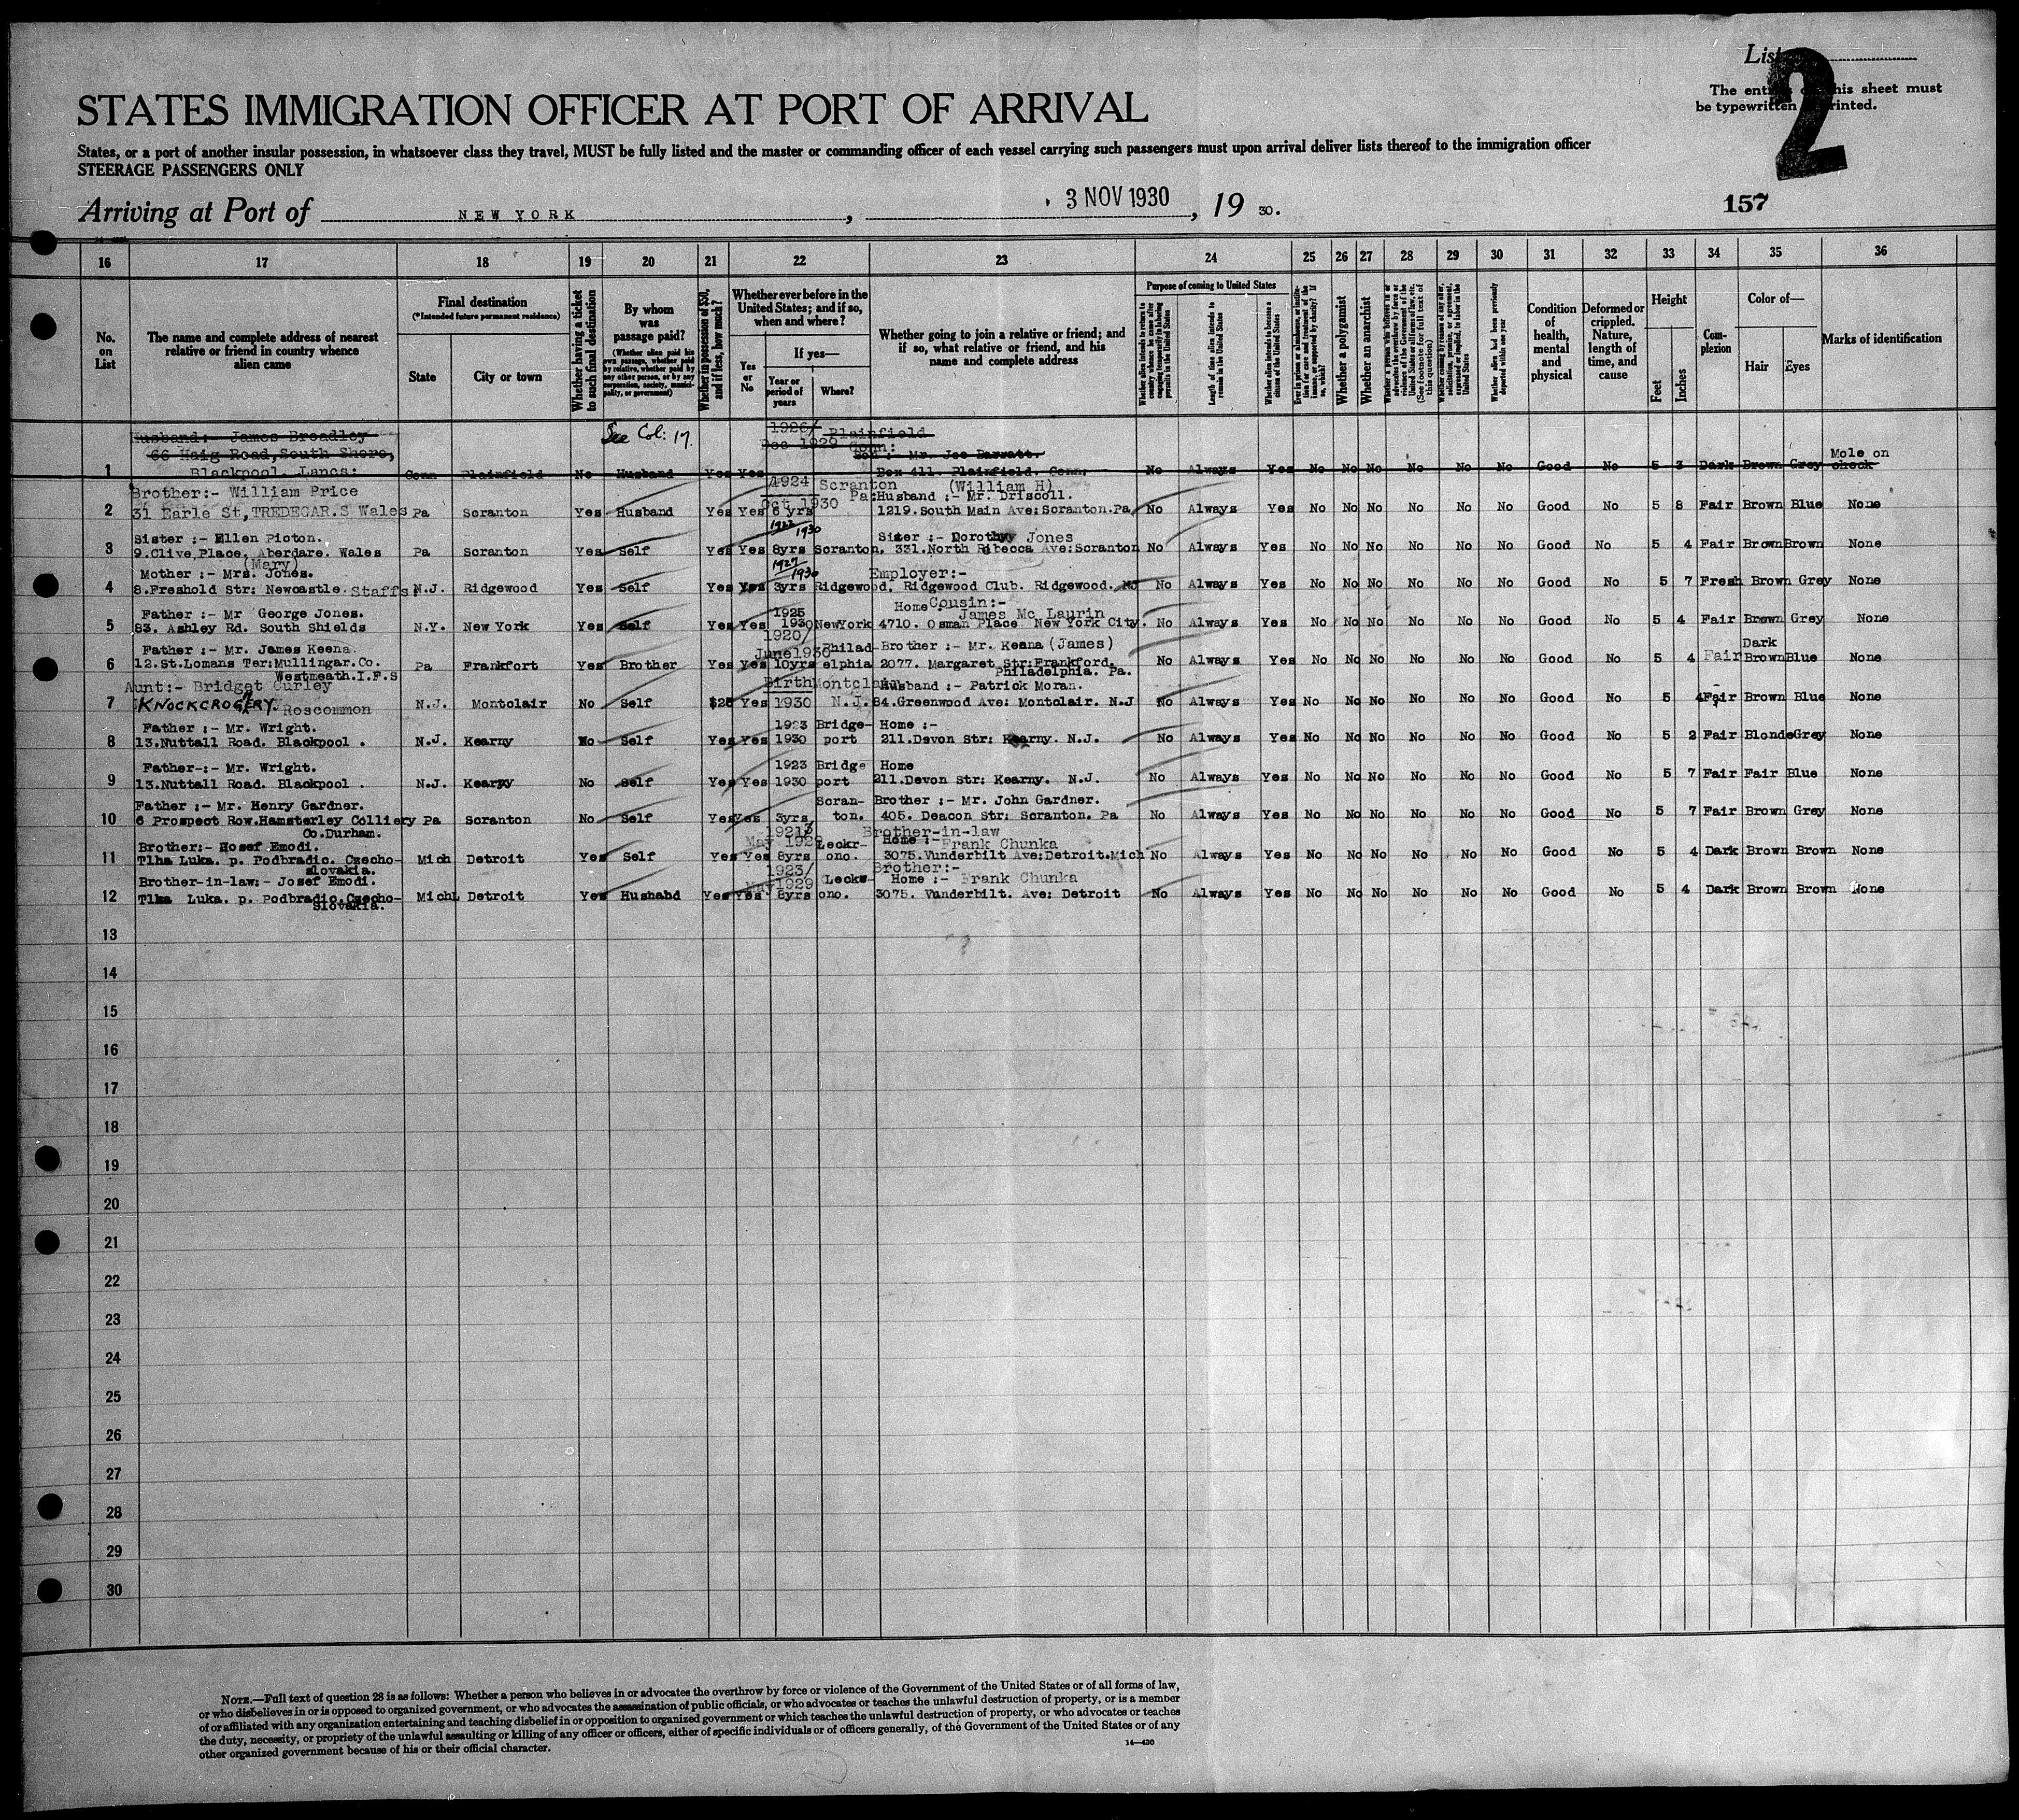 List
2
The entries on this sheet must
be typewritten or printed.
STATES IMMIGRATION OFFICER AT PORT OF ARRIVAL
States, or a port of another insular possession, in whatsoever class they travel, MUST be fully listed and the master or commanding officer of each vessel carrying such passengers must upon arrival deliver lists thereof to the immigration officer
STEERAGE PASSENGERS ONLY
Arriving at Port of NEW YORK, 3 NOV 1930, 19 30.
157
16 17 18 19 20 21 22 23 24 25 26 27 28 29 30 31 32 33 34 35 36
No. on List
The name and complete address of nearest relative or friend in country whence alien came
Final destination
(*Intended future permanent residence)
State
City or town
Whether having a ticket to such final destination
By whom was passage paid?
(Whether alien paid his own passage, whether paid by relative, whether paid by any other person, or by any corporation, society, municipality, or government)
Whether in possession of $50, and if less, how much?
Whether ever before in the United States; and if so, when and where?
Yes or No
If yes—
Year or period of years
Where?
Whether going to join a relative or friend; and if so, what relative or friend, and his name and complete address
Purpose of coming to United States
Length of time alien intends to remain in the United States
Whether alien intends to become a citizen of the United States
Whether a polygamist
Whether an anarchist
Whether alien had been previously deported within one year
Condition of health, mental and physical
Deformed or crippled. Nature, length of time, and cause
Height
Feet
Inches
Complexion
Color of—
Hair
Eyes
Marks of identification
Husband:- James Broadley
See Col: 17.
1926/ Plainfield
66 Haig Road, South Shore,
Dec 1929 Conn:
Son :- Mr. Joe Barratt.
Mole on
1 Blackpool. Lancs: Conn Plainfield No Husband Yes Yes Box 411. Plainfield. Conn: No Always Yes No No No No No No Good No 5 3 Dark Brown Grey cheek
Brother:- William Price
1924 Scranton (William H)
Oct 1930 Pa: Husband :- Mr. Driscoll.
2 31 Earle St, TREDEGAR. S Wales Pa Scranton Yes Husband Yes Yes 6 yrs 1219. South Main Ave: Scranton. Pa No Always Yes No No No No No No Good No 5 8 Fair Brown Blue None
Sister :- Ellen Picton.
1922 1930
Sister :- Dorothy Jones
3 9. Clive Place, Aberdare. Wales Pa Scranton Yes Self Yes Yes 8yrs Scranton. 331. North Rebecca Ave: Scranton No Always Yes No No No No No No Good No 5 4 Fair Brown Brown None
(Mary)
Mother :- Mrs. Jones.
1927 1930
Employer:-
4 8. Freshold Str: Newcastle. Staffs N.J. Ridgewood Yes Self Yes Yes 3yrs Ridgewood. Ridgewood Club. Ridgewood. No Always Yes No No No No No No Good No 5 7 Fresh Brown Grey None
Father :- Mr George Jones.
1925
Home Cousin:-
James Mc Laurin
5 83. Ashley Rd. South Shields N.Y. New York Yes Self Yes Yes 1930 New York 4710. Osman Place New York City. No Always Yes No No No No No No Good No 5 4 Fair Brown Grey None
Father :- Mr. James Keena.
1920/
June 1930 Philad- Brother :- Mr. Keena (James)
Dark
6 12. St. Lomans Ter: Mullingar. Co. Pa Frankfort Yes Brother Yes Yes 10yrs elphia 2077. Margaret Str: Frankford. No Always Yes No No No No No No Good No 5 4 Fair Brown Blue None
Westmeath. I.F.S
Philadelphia. Pa.
Aunt:- Bridget Curley
Birth Montclair Husband :- Patrick Moran.
7 KNOCKCROGERY. Roscommon N.J. Montclair No Self $25 Yes 1930 N.J. 84. Greenwood Ave: Montclair. N.J No Always Yes No No No No No No Good No 5 4 Fair Brown Blue None
Father :- Mr. Wright.
1923 Bridge- Home :-
8 13. Nuttall Road. Blackpool . N.J. Kearny No Self Yes Yes 1930 port 211. Devon Str: Kearny. N.J. No Always Yes No No No No No No Good No 5 2 Fair Blonde Grey None
Father-:- Mr. Wright.
1923 Bridge Home
9 13. Nuttall Road. Blackpool . N.J. Kearny No Self Yes Yes 1930 port 211. Devon Str: Kearny. N.J. No Always Yes No No No No No No Good No 5 7 Fair Fair Blue None
Father :- Mr. Henry Gardner.
Scran- Brother :- Mr. John Gardner.
10 6 Prospect Row. Hamsterley Colliery Pa Scranton No Self Yes Yes 3yrs ton. 405. Deacon Str: Scranton. Pa No Always Yes No No No No No No Good No 5 7 Fair Brown Grey None
Co. Durham.
Brother-in-law
Brother:- Josef Emodi.
Leckr- Home :- Frank Chunka
11 Tlha Luka. p. Podbradio. Czecho- Mich Detroit Yes Self Yes Yes 8yrs ono. 3075. Vunderbilt Ave: Detroit. Mich No Always Yes No No No No No No Good No 5 4 Dark Brown Brown None
slovakia.
1923/
Brother:-
Brother-in-law:- Josef Emodi.
May 1929 Home :- Frank Chunka
12 Tlha Luka. p. Podbradio. Czecho- Mich Detroit Yes Husband Yes Yes 8yrs ono. 3075. Vunderbilt. Ave: Detroit No Always Yes No No No No No No Good No 5 4 Dark Brown Brown None
slovakia.
13
14
15
16
17
18
19
20
21
22
23
24
25
26
27
28
29
30
NOTE.—Full text of question 28 is as follows: Whether a person who believes in or advocates the overthrow by force or violence of the Government of the United States or of all forms of law,
or who disbelieves in or is opposed to organized government, or who advocates the assassination of public officials, or who advocates or teaches the unlawful destruction of property, or is a member
of or affiliated with any organization entertaining and teaching disbelief in or opposition to organized government or which teaches the unlawful destruction of property, or who advocates or teaches
the duty, necessity, or propriety of the unlawful assaulting or killing of any officer or officers, either of specific individuals or of officers generally, of the Government of the United States or of any
other organized government because of his or their official character.
14—430